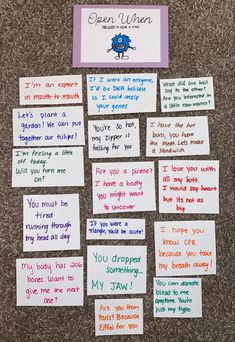 Open When
I'm an expert
in mouth-to-mouth
If I were an enzyme,
I'd be DNA helicase
so I could unzip
your genes
What did one boat
say to the other?
Are you interested in
a little row-mance?
Let's plant a
garden! We can put
together our tulips!
You're so hot,
my zipper is
falling for you
I have the hot
buns, you have
the meat. Lets make
a sandwich
I'm feeling a little
off today.
Will you turn me
on?
Are you a pirate?
I have a booty
you might
want to
uncover
I love you with
all my butt,
I would say heart
but its not as
big
You must be
tired
running through
my head all day
If you were a
triangle, you'd be acute!
I hope you
know CPR
because you take
my breath away!
My body has 206
bones. Want to
give me the next
one?
You dropped
something...
MY JAW!
You can donate
blood to me
anytime. You're
just my type.
Are you from
Paris? Because
Eiffel for you